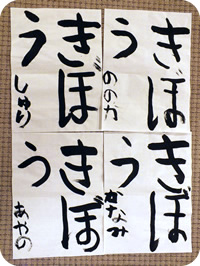 きぼ
う
ののか
きぼ
う
しゅり
きぼ
う
かなみ
きぼ
う
あやの